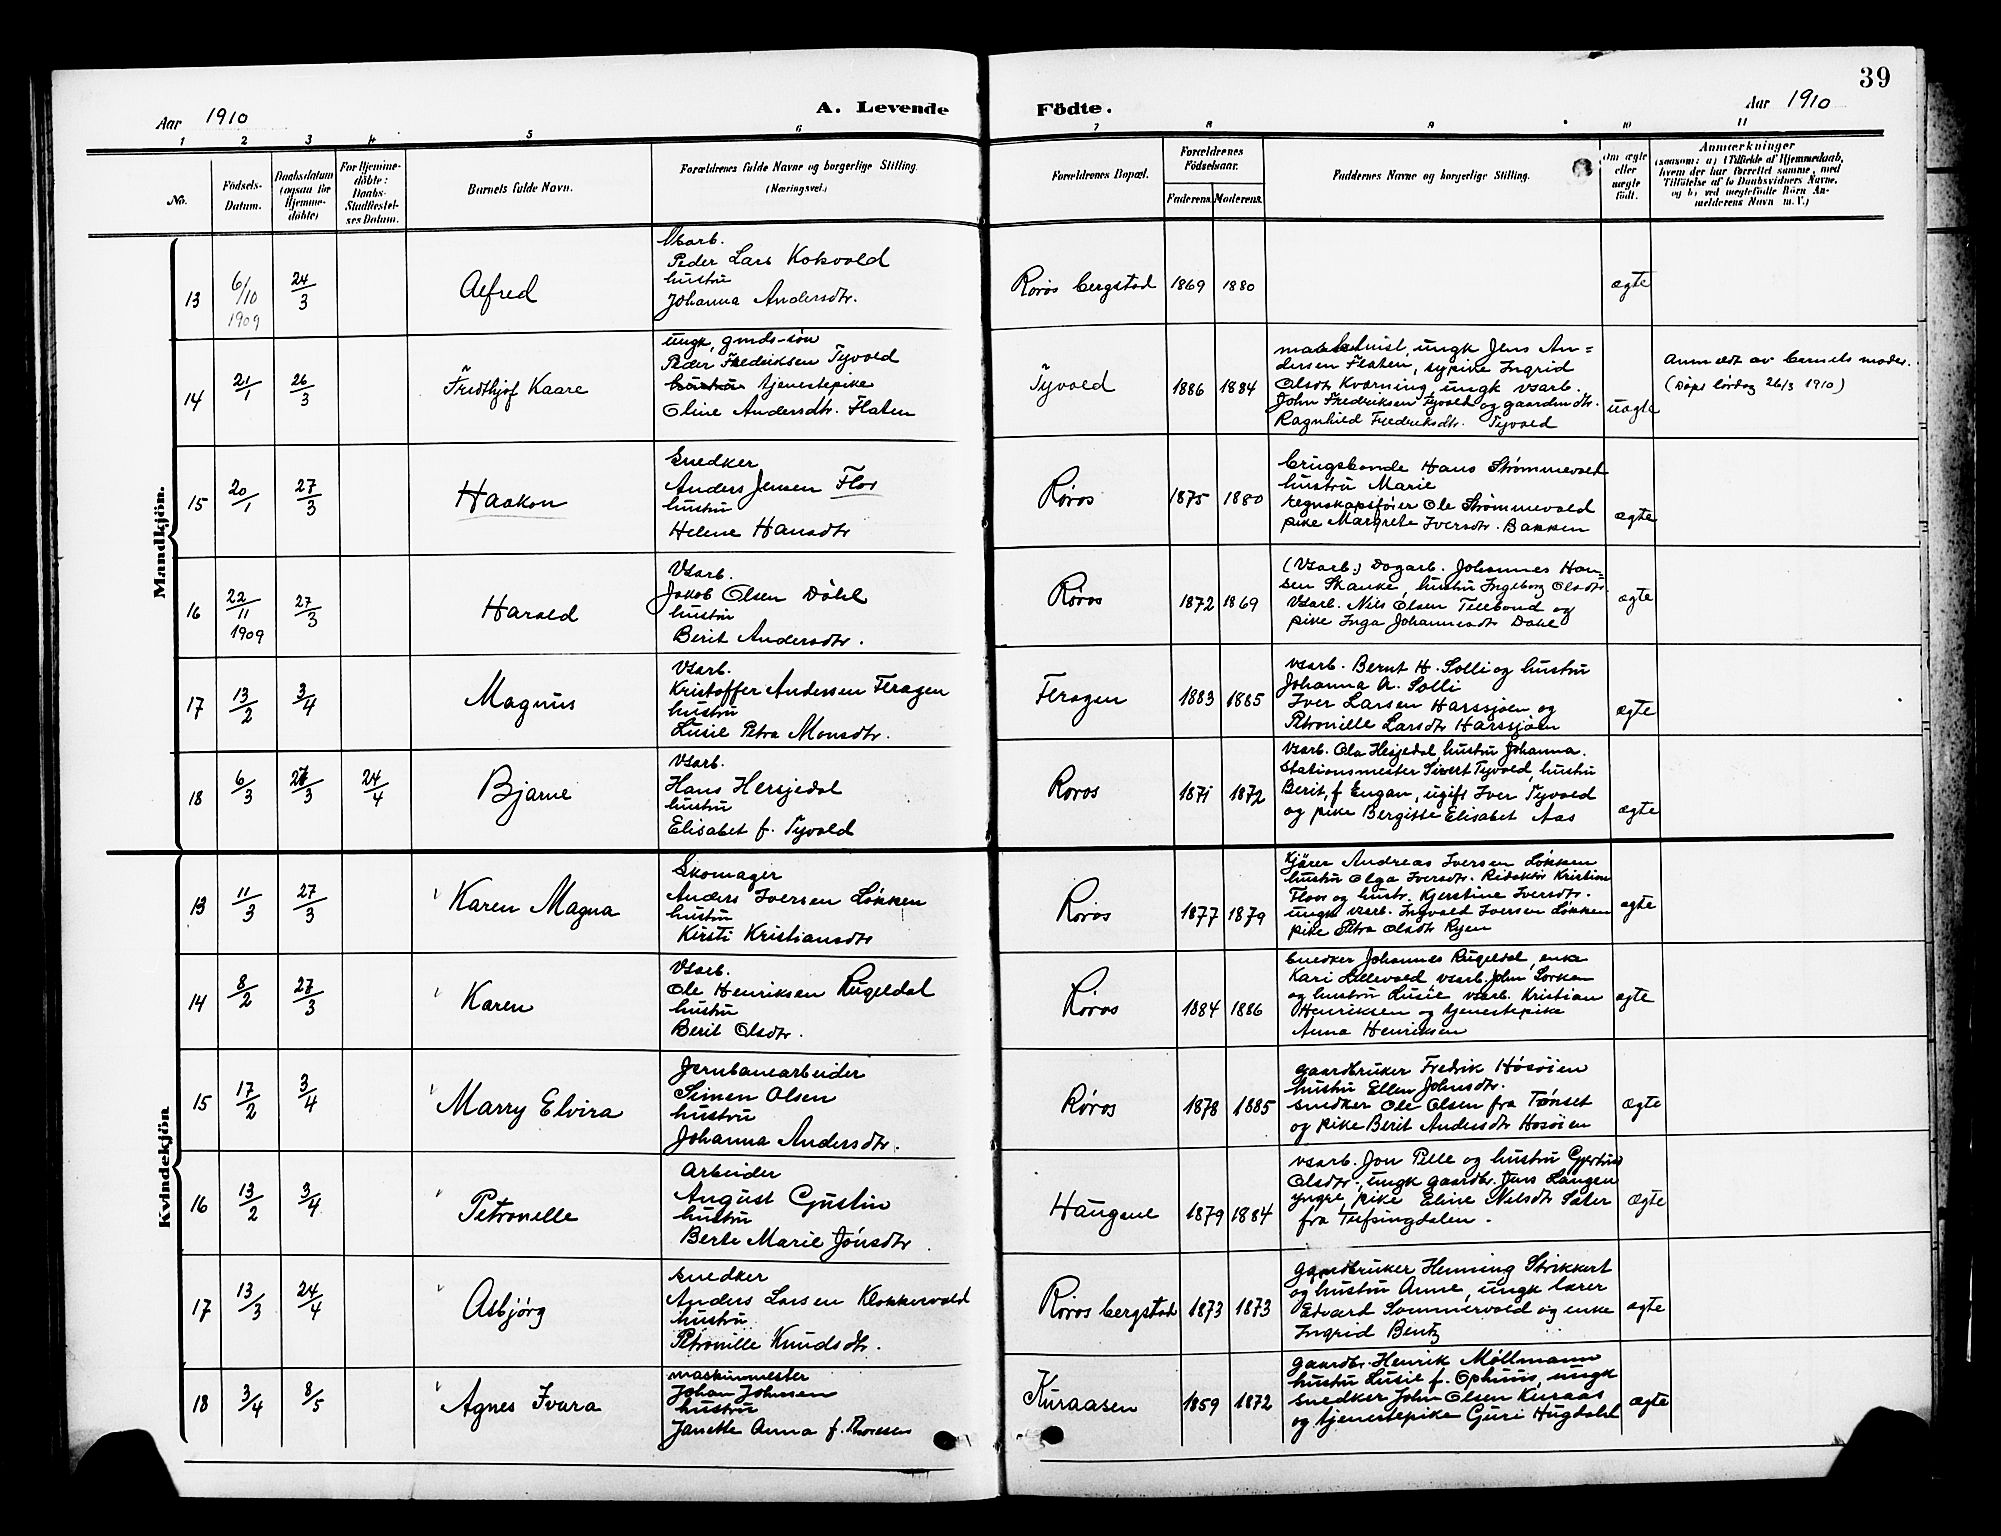 39
Aar 1910
A. Levende
Födte.
Aar 1910
1 2 3 4 5 6 7 8 9 10 11
No.
Födsels-
Datum.
Daabsdatum
(ogsaa for
Hjemme-
döbte)
For Hjemme-
döbte:
Daabs-
Stadfæstel-
ses Datum.
Barnets fulde Navn.
Forældrenes fulde Navne og borgerlige Stilling.
(Næringsvei.)
Forældrenes Bopæl.
Forældrenes
Födselsaar.
Faderens.
Moderens.
Faddernes Navne og borgerlige Stilling.
Om ægte
eller
uægte
födt.
Anmærkninger
(saasom: a) i Tilfælde af Hjemmedaab,
hvem der har forrettet samme, med
Tilföielse af to Daabsvidners Navne,
og b) ved uegtefödte Börn An-
melderens Navn m. V.)
Mandkjön.
13 6/10 1909 24/3 Alfred
Peder Lars Kokvold
hustru
Johanna Andersdtr.
Røros bergstad 1869 1880 ægte
14 21/1 26/3 Fredthjof Kaare
ungk, gmds-søn
Peder Fredriksen Tyvold
hustru tjenestepike
Oline Andersdtr. Flaten
Tyvold 1886 1884
ungk Jens An=
dersen Flaten, sypike Ingrid
Olsdtr Kværning, ungk vsarb.
John Fredriksen Tyvold og gaardmdtr.
Ragnhild Fredriksdtr. Tyvold
uægte
Anmeldt av barnets moder.
(Døpt lørdag 26/3 1910)
15 20/1 27/3 Haakon
Snedker
Anders Jensen Flor
hustru
Helene Hansdtr
Røros 1875 1880
brugsbonde Hans Strømmevold
hustru Marie
regnskapsfører Ole Strømmevold
pike Margrete Iversdtr. Bakken
ægte
16 22/11 1909 27/3 Harald
Vsarb.
Jakob Olsen Døhl
hustru
Berit Andersdtr.
Røros 1872 1869
(Vsarb.) Dagarb. Johannes Han=
sen Skanke, hustru Ingeborg Olsdtr.
Vsarb. Nils Olsen Tellebond og
pike Inga Johannesdtr Døhl
ægte
17 13/2 3/4 Magnus
Vsarb.
Kristoffer Andersen Feragen
hustru
Lusie Petra Monsdtr.
Feragen 1883 1885
vsarb. Bernt H. Solli og hustru
Johanna A. Solli
Iver Larsen Harssjøen og
Petronille Larsdtr Harssjøen
ægte
18 6/3 27/3 24/4 Bjarne
Vsarb.
Hans Hersjedal
hustru
Elisabet f. Tyvold
Røros 1871 1872
Vsarb. Ola Hesjedal, hustru Johanna.
Stationsmester Sivert Tyvold, hustru
Berit, f Engan, ugift Iver Tyvold
og pike Bergitte Elisabet Aas
ægte
Kvindekjön.
13 11/3 27/3 Karen Magna
Skomager
Anders Iversen Løkken
hustru
Kirsti Kristiansdtr
Røros 1877 1879
kjører Andreas Iversen Løkken
hustru Olga Iversdtr. Redaktør Kristian
Floor og hustr. Kjerstine Iversdtr.
ungk vsarb. Ingvald Iversen Løkken
pike Petra Olsdtr Ryen
ægte
14 8/2 27/3 Karen
Vsarb.
Ole Henriksen Rugeldal
hustru
Berit Olsdtr.
Røros 1884 1886
Snedker Johannes Rugeldal, enke
Kari Lillevold, vsarb. John Sorken
og hustru Lusie vsarb. Kristian
Henriksen og tjenestepike
Anna Henriksen
ægte
15 17/2 3/4 Marry Elvira
Jernbanearbeider
Simen Olsen
hustru
Johanna Andersdtr.
Røros 1878 1885
gaardbruker Fredrik Høsøien
hustru Ellen Johnsdtr.
snedker Ole Olsen fra Tønset
og pike Berit Andersdtr Høsøien
ægte
16 13/2 3/4 Petronelle
Arbeider
August Gustin
hustru
Berte Marie Jonsdtr.
Haugene 1879 1884
vsarb. Jon Pelle og hustru
Olsdtr, ungk gaardbr. Jens Langen
yngre, pike Eline Nilsdtr Sæter
fra Tufsingdalen.
ægte
17 13/3 24/4 Asbjørg
snedker
Anders Larsen Klokkervold
hustru
Petronille Knudsdtr.
Røros bergstad 1873 1873
gaardbruker Henning Strikkert
og hustru Anne, ungk lærer
Edvard Sommervold og enke
Ingrid Bentz
ægte
18 3/4 8/5 Agnes Ivara
maskinmester
Johan Johnsen
hustru
Janette Anna f. Thoresen
Kuraasen 1859 1872
gaardbr. Henrik Møllmann
hustru Lusie f. Ophuus, ungk
snedker John Olsen Kuraas
og tjenestepike Guri Hugdahl
ægte